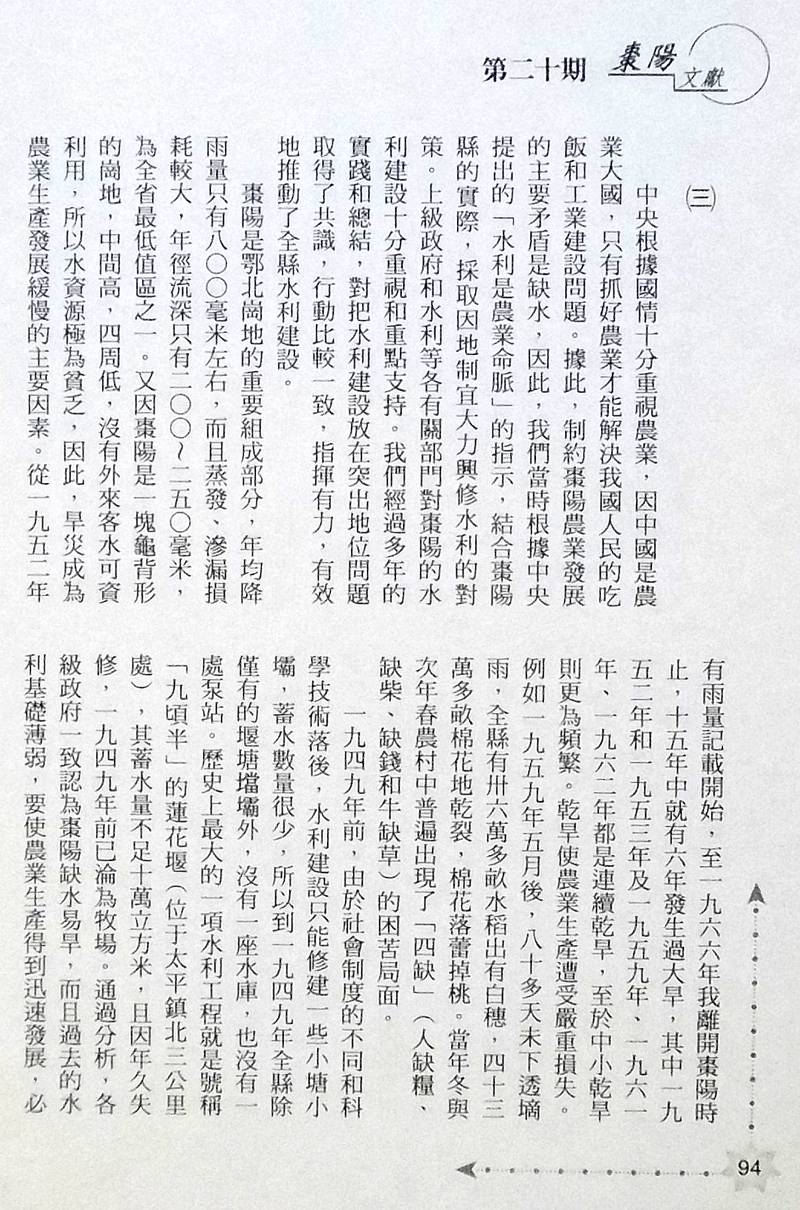 第二十期
棗陽
文獻
㈢
中央根據國情十分重視農業，因中國是農
業大國，只有抓好農業才能解決我國人民的吃
飯和工業建設問題。據此，制約棗陽農業發展
的主要矛盾是缺水，因此，我們當時根據中央
提出的「水利是農業命脈」的指示，結合棗陽
縣的實際，採取因地制宜大力興修水利的對
策。上級政府和水利等各有關部門對棗陽的水
利建設十分重視和重點支持。我們經過多年的
實踐和總結，對把水利建設放在突出地位問題
取得了共識，行動比較一致，指揮有力，有效
地推動了全縣水利建設。
棗陽是鄂北崗地的重要組成部分，年均降
雨量只有八〇〇毫米左右，而且蒸發、滲漏損
耗較大，年徑流深只有二〇〇~二五〇毫米，
為全省最低值區之一。又因棗陽是一塊龜背形
的崗地，中間高，四周低，沒有外來客水可資
利用，所以水資源極為貧乏，因此，旱災成為
農業生產發展緩慢的主要因素。從一九五二年
有雨量記載開始，至一九六六年我離開棗陽時
止，十五年中就有六年發生過大旱，其中一九
五二年和一九五三年及一九五九年、一九六一
年、一九六二年都是連續乾旱，至於中小乾旱
則更為頻繁。乾旱使農業生產遭受嚴重損失。
例如一九五九年五月後，八十多天未下透墒
雨，全縣有卅六萬多畝水稻出有白穗，四十三
萬多畝棉花地乾裂，棉花落蕾掉桃。當年冬與
次年春農村中普遍出現了「四缺」（人缺糧、
缺柴、缺錢和牛缺草）的困苦局面。
一九四九年前，由於社會制度的不同和科
學技術落後，水利建設只能修建一些小塘小
壩，蓄水數量很少，所以到一九四九年全縣除
僅有的堰塘壋壩外，沒有一座水庫，也沒有一
處泵站。歷史上最大的一項水利工程就是號稱
「九頃半」的蓮花堰（位于太平鎮北三公里
處），其蓄水量不足十萬立方米，且因年久失
修，一九四九年前已淪為牧場。通過分析，各
級政府一致認為棗陽缺水易旱，而且過去的水
利基礎薄弱，要使農業生產得到迅速發展，必
94